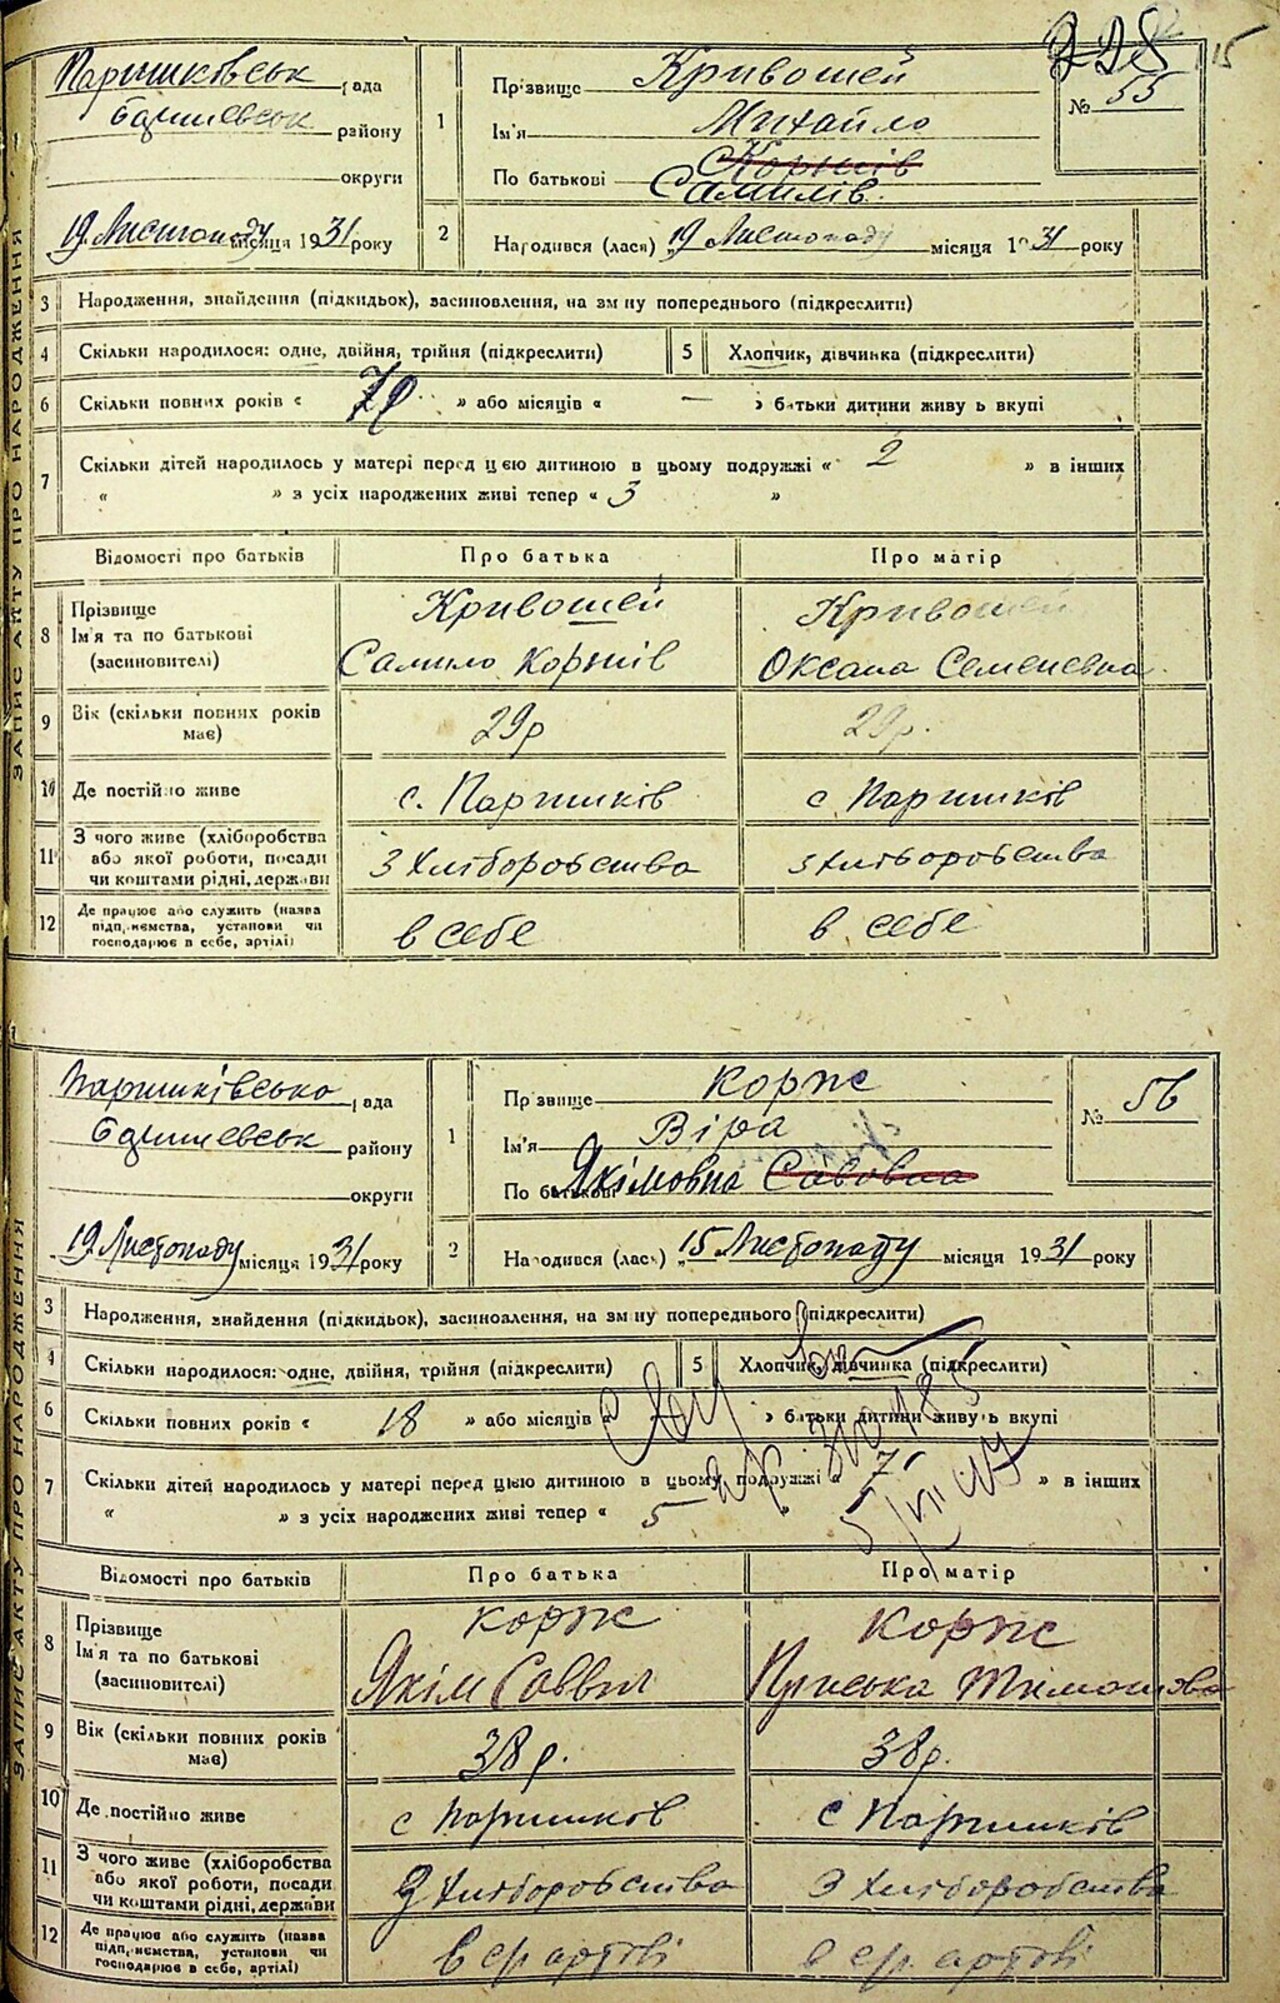 ЗАПИС АКТУ ПРО НАРОДЖЕННЯ
228 15
Паришковськ рада
Баришевськ району
округи
19 Листопаду місяця 1931 року
1
Прізвище Кривошей
Ім'я Михайло
По батькові Корнів
Самилів.
№ 55
2 Народився (лася) 19 Листопаду місяця 1931 року
3 Народження, знайдення (підкидьок), засиновлення, на зміну попереднього (підкреслити)
4 Скільки народилося: одне, двійня, трійня (підкреслити) 5 Хлопчик, дівчинка (підкреслити)
6 Скільки повних років « » або місяців « — » батьки дитини живуть вкупі
7 Скільки дітей народилось у матері перед цією дитиною в цьому подружжі « 2 » в інших
« » з усіх народжених живі тепер « 3 »
Відомості про батьків Про батька Про матір
8 Прізвище Ім'я та по батькові (засиновителі) Кривошей Кривошей
Самило Корнів Оксана Семеневна
9 Вік (скільки повних років має) 29р 29р.
10 Де постійно живе с. Паришків с Паришків
11 З чого живе (хліборобства або якої роботи, посади чи коштами рідні, держави З Хліборобства з Хліборобства
12 Де працює або служить (назва підприємства, установи чи господарює в себе, артілі) в себе в себе
ЗАПИС АКТУ ПРО НАРОДЖЕННЯ
Паришківсько рада
Баришевськ району
округи
19 Листопаду місяця 1931 року
1
Прізвище Корж
Ім'я Віра
По батькові Якімовна Савовна
№ 56
2 Народився (лася) „15 Листопаду місяця 1931 року
3 Народження, знайдення (підкидьок), засиновлення, на зміну попереднього (підкреслити)
4 Скільки народилося: одне, двійня, трійня (підкреслити) 5 Хлопчик, дівчинка (підкреслити)
6 Скільки повних років « 18 » або місяців « » батьки дитини живуть вкупі
7 Скільки дітей народилось у матері перед цією дитиною в цьому подружжі « 7 » в інших
« » з усіх народжених живі тепер « 5 »
Відомості про батьків Про батька Про матір
8 Прізвище Ім'я та по батькові (засиновителі) Корж Корж
Якім Тимошовва
9 Вік (скільки повних років має) 38р. 38р.
10 Де постійно живе с Паришков с Паришків
11 З чого живе (хліборобства або якої роботи, посади чи коштами рідні, держави З Хліборобства З Хліборобства
12 Де працює або служить (назва підприємства, установи чи господарює в себе, артілі)